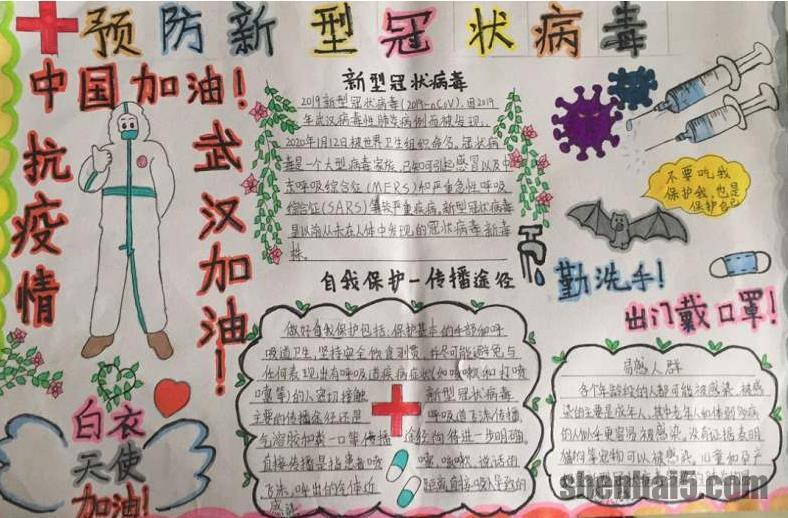 预防新型冠状病毒
中国加油!
抗疫情
武汉加油!
新型冠状病毒
2019新型冠状病毒(2019-nCoV),因2019
年武汉病毒性肺炎病例而被发现,
2020年1月12日被世界卫生组织命名。冠状病
毒是一个大型病毒家族,已知可引起感冒以及中
东呼吸综合征(MERS)和严重急性呼吸
综合征(SARS)等较严重疾病,新型冠状病毒
是以前从未在人体中发现的冠状病毒新毒
株。
不要吃我
保护我,也是
保护自己
勤洗手!
出门戴口罩!
自我保护-传播途径
做好自我保护包括:保护基本的手部和呼
吸道卫生,坚持安全饮食习惯,并尽可能避免与
任何表现出有呼吸道疾病症状(如咳嗽和打喷
嚏等)的人密切接触 新型冠状病毒
主要的传播途径还是 呼吸道飞沫传播,
气溶胶和粪一口等传播 途径尚待进一步明确,
直接传播是指患者喷 嚏,咳嗽,说话的
飞沫,呼出的气体近 距离直接吸入导致的
感染
易感人群
各个年龄段的人都可能被感染,被感
染的主要是成年人,其中老年人和体弱多病
的人似乎更容易被感染,没有证据表明
猫狗等宠物可以被感染,儿童和孕产
白衣
天使
加油!
shenhai5.com